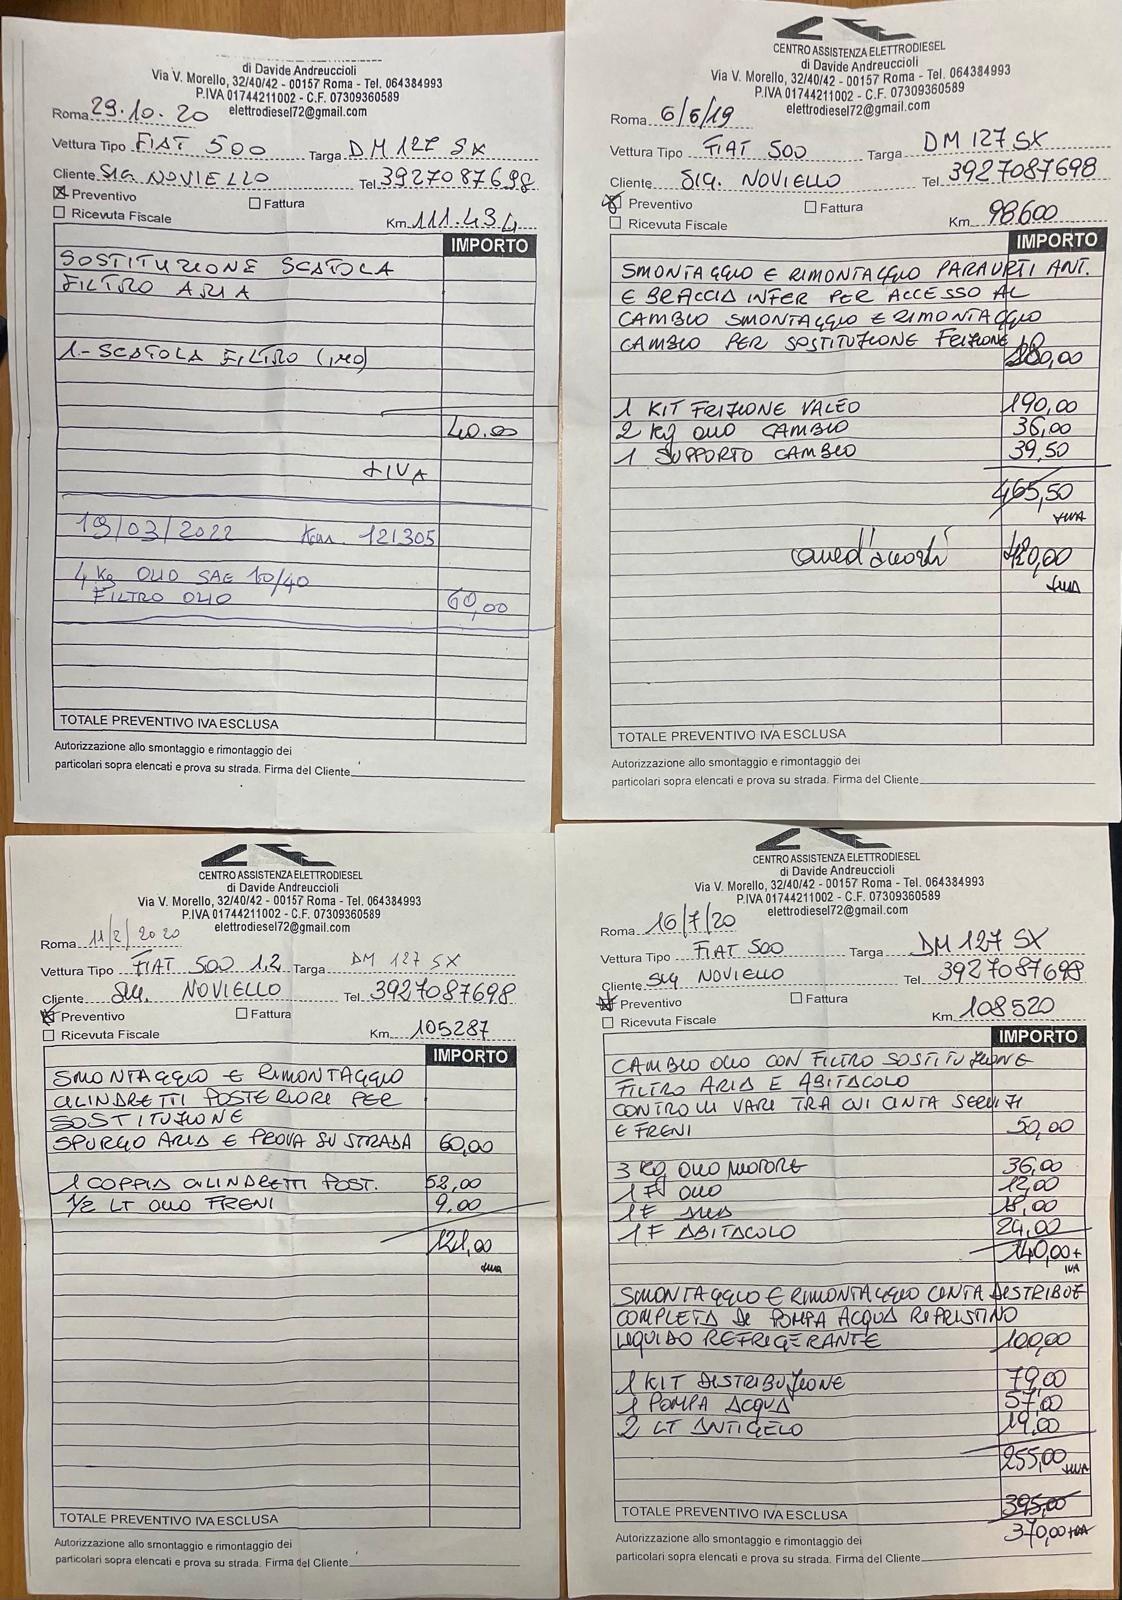 di Davide Andreuccioli
Via V. Morello, 32/40/42 - 00157 Roma - Tel. 064384993
P.IVA 01744211002 - C.F. 07309360589
elettrodiesel72@gmail.com
Roma 29.10.20
Vettura Tipo FIAT 500 Targa DM 127 SX
Cliente SIG. NOVIELLO Tel 3927087698
Preventivo Fattura
Ricevuta Fiscale Km 111.434
IMPORTO
SOSTITUZIONE SCATOLA
FILTRO ARIA
1 - SCATOLA FILTRO
40.00
+IVA
19/03/2022 Km. 121305
4 Kg OLIO SAE 10/40
FILTRO OLIO 60,00
TOTALE PREVENTIVO IVA ESCLUSA
Autorizzazione allo smontaggio e rimontaggio dei
particolari sopra elencati e prova su strada. Firma del Cliente
CENTRO ASSISTENZA ELETTRODIESEL
di Davide Andreuccioli
Via V. Morello, 32/40/42 - 00157 Roma - Tel. 064384993
P.IVA 01744211002 - C.F. 07309360589
elettrodiesel72@gmail.com
Roma 6/6/19
Vettura Tipo FIAT 500 Targa DM 127 SX
Cliente SIG. NOVIELLO Tel 3927087698
Preventivo Fattura
Ricevuta Fiscale Km 98600
IMPORTO
SMONTAGGIO E RIMONTAGGIO PARAURTI ANT.
E BRACCIO INFER PER ACCESSO AL
CAMBIO SMONTAGGIO E RIMONTAGGIO
CAMBIO PER SOSTITUZIONE FRIZIONE
1 KIT FRIZIONE VALEO 190,00
2 Kg OLIO CAMBIO 36,00
1 SUPPORTO CAMBIO 39,50
465,50
+IVA
come d'accordi 420,00
+IVA
TOTALE PREVENTIVO IVA ESCLUSA
Autorizzazione allo smontaggio e rimontaggio dei
particolari sopra elencati e prova su strada. Firma del Cliente
CENTRO ASSISTENZA ELETTRODIESEL
di Davide Andreuccioli
Via V. Morello, 32/40/42 - 00157 Roma - Tel. 064384993
P.IVA 01744211002 - C.F. 07309360589
elettrodiesel72@gmail.com
Roma 11/2/2020
Vettura Tipo FIAT 500 1,2 Targa DM 127 SX
Cliente SIG. NOVIELLO Tel 3927087698
Preventivo Fattura
Ricevuta Fiscale Km 105287
IMPORTO
SMONTAGGIO E RIMONTAGGIO
CILINDRETTI POSTERIORE PER
SOSTITUZIONE
SPURGO ARIA E PROVA SU STRADA 60,00
1 COPPIA CILINDRETTI POST. 52,00
1/2 LT OLIO FRENI 9,00
121,00
+IVA
TOTALE PREVENTIVO IVA ESCLUSA
Autorizzazione allo smontaggio e rimontaggio dei
particolari sopra elencati e prova su strada. Firma del Cliente
CENTRO ASSISTENZA ELETTRODIESEL
di Davide Andreuccioli
Via V. Morello, 32/40/42 - 00157 Roma - Tel. 064384993
P.IVA 01744211002 - C.F. 07309360589
elettrodiesel72@gmail.com
Roma 16/7/20
Vettura Tipo FIAT 500 Targa DM 127 SX
Cliente SIG NOVIELLO Tel 3927087698
Preventivo Fattura
Ricevuta Fiscale Km 108520
IMPORTO
CAMBIO OLIO CON FILTRO SOSTITUZIONE
FILTRO ARIA E ABITACOLO
CONTROLLI VARI TRA CUI CINTA SERVIZI
E FRENI 50,00
3 KG OLIO MOTORE 36,00
1 F OLIO 12,00
1 F ARIA 18,00
1 F ABITACOLO 24,00
140,00+
IVA
SMONTAGGIO E RIMONTAGGIO CINTA DISTRIBUZ
COMPLETA DI POMPA ACQUA RIPRISTINO
LIQUIDO REFRIGERANTE 100,00
1 KIT DISTRIBUZIONE 79,00
1 POMPA ACQUA 57,00
2 LT ANTIGELO 19,00
255,00 +IVA
395,00
TOTALE PREVENTIVO IVA ESCLUSA
370,00 +IVA
Autorizzazione allo smontaggio e rimontaggio dei
particolari sopra elencati e prova su strada. Firma del Cliente